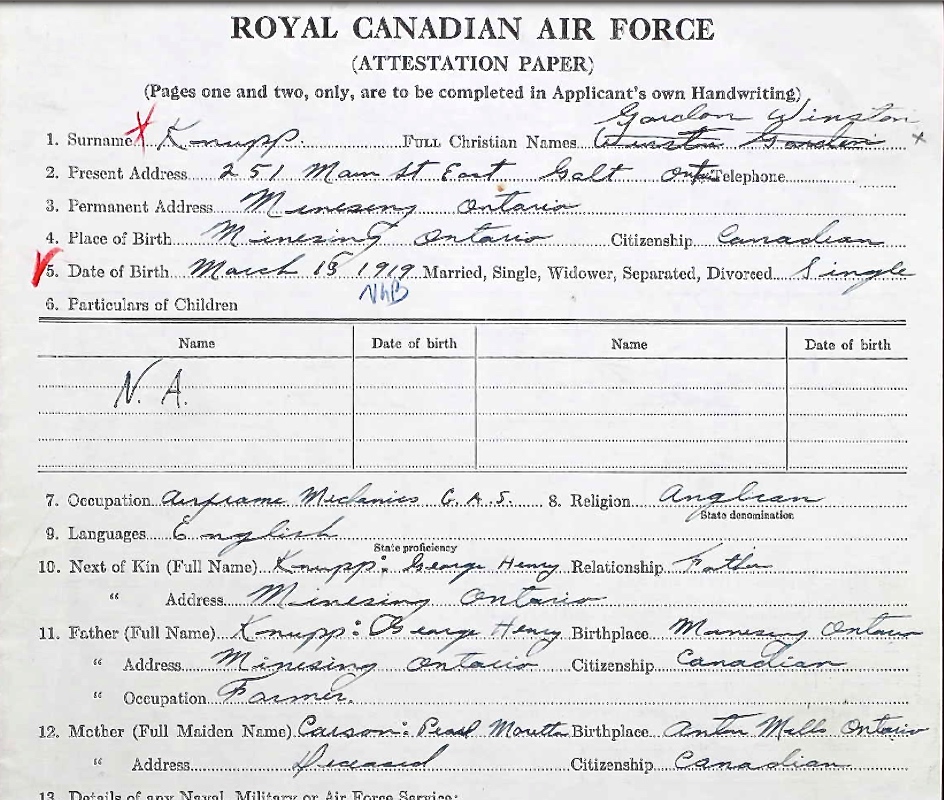 ROYAL CANADIAN AIR FORCE
(ATTESTATION PAPER)
(Pages one and two, only, are to be completed in Applicant's own Handwriting)
Gordon Winston
1. Surname X Knupp. FULL Christian Names Winston Gordon x
2. Present Address 251 Main St East Galt Ont Telephone
3. Permanent Address Minesing Ontario
4. Place of Birth Minesing Ontario Citizenship Canadian
5. Date of Birth March 15 1919 Married, Single, Widower, Separated, Divorced Single
6. Particulars of Children
Name Date of birth Name Date of birth
N. A.
7. Occupation Airframe Mechanics G.A.S. 8. Religion Anglican
State denomination
9. Languages English
State proficiency
10. Next of Kin (Full Name) Knupp: George Henry Relationship Father
" Address Minesing Ontario
11. Father (Full Name) Knupp: George Henry Birthplace Minesing Ontario
" Address Minesing Ontario Citizenship Canadian
" Occupation Farmer.
12. Mother (Full Maiden Name) Carson: Pearl Birthplace Mills Ontario
" Address Deceased Citizenship Canadian
13. Details of any Naval, Military or Air Force Service: